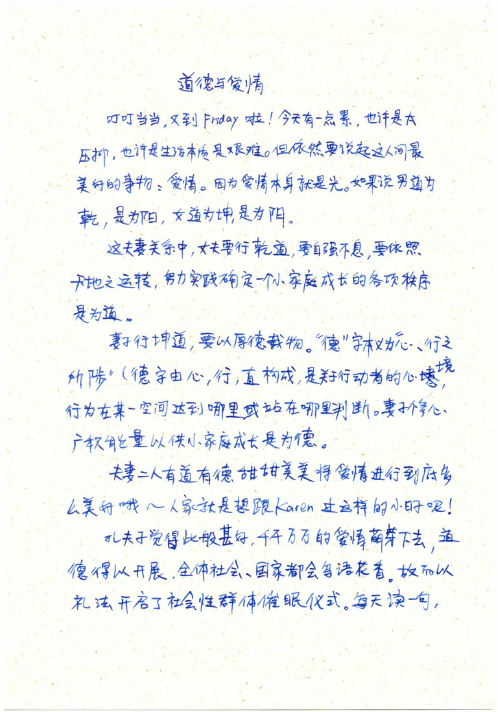 道德与爱情
叮叮当当,又到Friday啦!今天有一点累,也许是太
压抑,也许是生活本质是艰难。但依然要说起这人间最
美好的事物:爱情。因为爱情本身就是光。如果说男道为
乾,是为阳,女道为坤,是为阴。
这夫妻关系中,丈夫要行乾道,要自强不息,要依照
天地之运转,努力实践确定一个小家庭成长的各项秩序
是为道。
妻子行坤道,要以厚德载物。“德”字本义为“心、行之
所陟”(德字由心,行,直构成,是关于行动者的心境,
行为在某一空间达到哪里或站在哪里判断。妻子修心
产积能量以供小家庭成长是为德。
夫妻二人有道有德甜甜美美将爱情进行到底多
么美好哦~人家就是想跟Karen过这样的小日子呢!
孔夫子觉得此般甚好,千千万万的爱情萌芽下去,道
德得以开展,全体社会、国家都会鸟语花香。故而以
礼法开启了社会性群体催眠仪式。每天演一句,